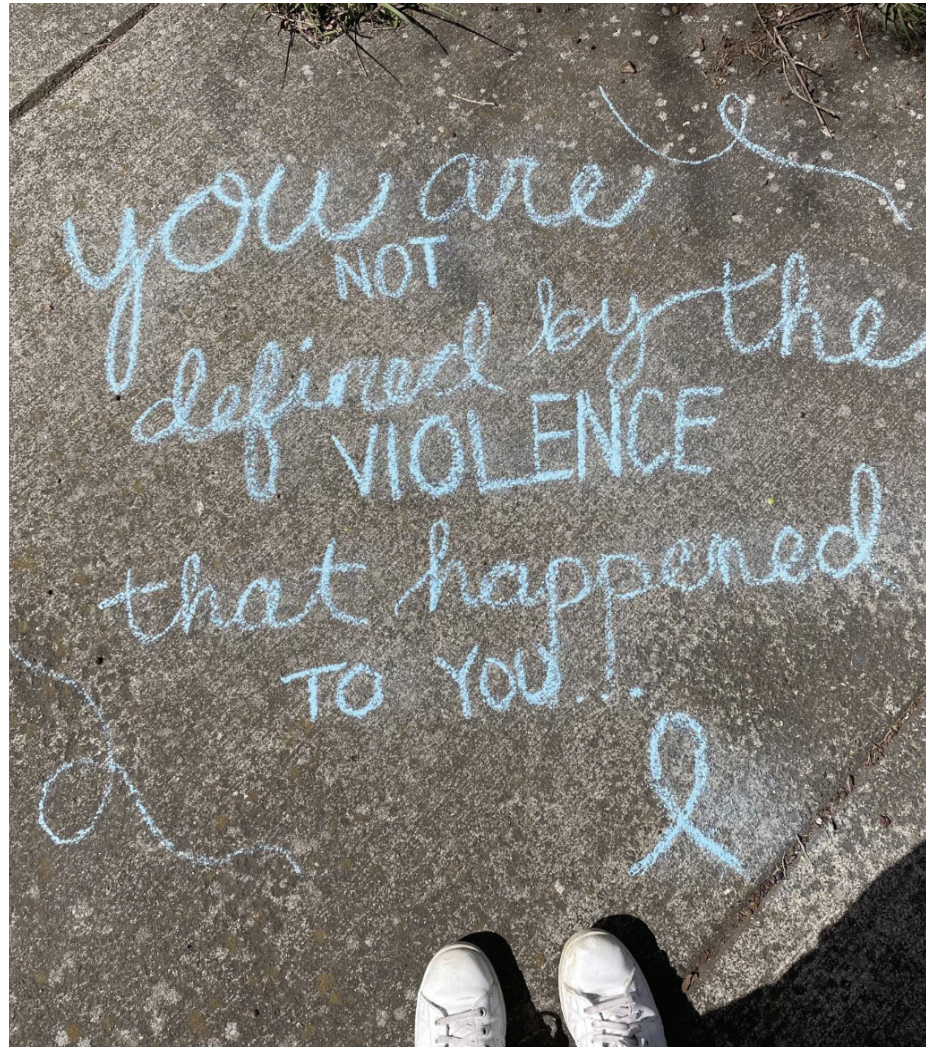 you are
NOT
defined by the
VIOLENCE
that happened
TO YOU...